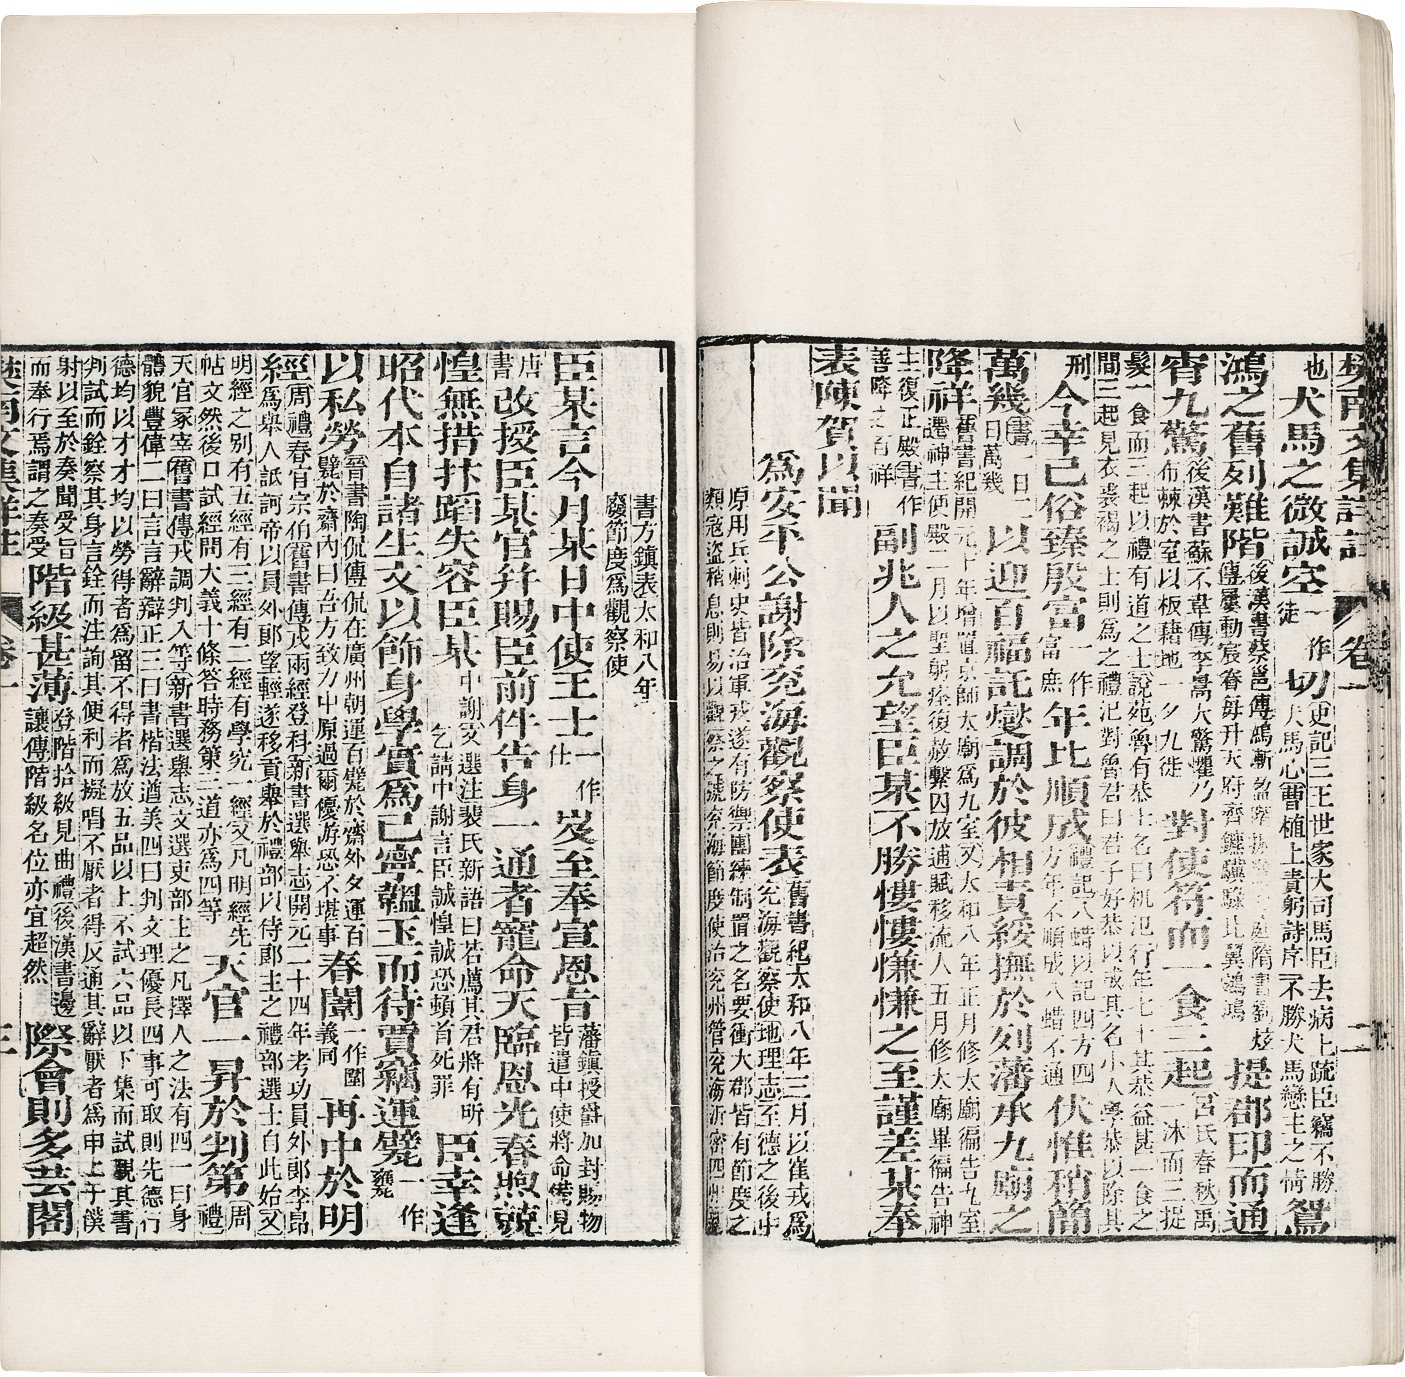 樊南文集詳註 卷一 二
也犬馬之微誠空一作徒切史記三王世家大司馬臣去病上疏臣竊不勝犬馬心曹植上責躬詩序不勝犬馬戀主之情鴛
鴻之舊列難階後漢書蔡邕傳鴻漸盈階庭隋書劉炫傳屢動宸眷每升天府齊鑣驥騄比翼鵷鴻提郡印而通
宵九驚後漢書蘇不韋傳李暠大驚懼乃布棘於室以板藉地一夕九徙對使符而一食三起呂氏春秋禹一沐而三捉
髮一食而三起以禮有道之士說苑魯有恭士名曰机氾行年七十其恭益甚一食之間三起見衣裘褐之士則為之禮汜對魯君曰君子好恭以成其名小人學恭以除其
刑今幸已俗臻殷富一作富庶年比順成禮記八蜡以記四方四方年不順成八蜡不通伏惟稍簡
萬幾書一日二日萬幾以迎百福託燮調於彼相責綏撫於列藩承九廟之
降祥舊書紀開元十年增置京師太廟為九室又太和八年正月修太廟徧告九室遷神主便殿二月以聖躬痊復赦繫囚放逋賦移流人五月修太廟畢徧告神
主復正殿書作善降之百祥副兆人之允望臣某不勝慺慺慊慊之至謹差某奉
表陳賀以聞
為安平公謝除兗海觀察使表舊書紀太和八年三月以崔戎為兗海觀察使地理志至德之後中
原用兵刺史皆治軍戎遂有防禦團練制置之名要衝大郡皆有節度之類寇盜稍息則易以觀察之號兗海節度使治兗州管兗海沂密四州
書方鎮表太和八年廢節度為觀察使
臣某言今月某日中使王士一作仕岌至奉宣恩旨藩鎮授爵加封賜物皆遣中使將命備見
唐書改授臣某官并賜臣前件告身一通者寵命天臨恩光春煦兢
惶無措抃蹈失容臣某中謝文選注裴氏新語曰若薦其君將有所乞請中謝言臣誠惶誠恐頓首死罪臣幸逢
昭代本自諸生文以飾身學實為己寧韞玉而待賈竊運甓一作甕
以私勞晉書陶侃傳侃在廣州朝運百甓於齋外夕運百甓於齋內曰吾方致力中原過爾優游恐不堪事春闈一作圍義同再中於明
經周禮春官宗伯舊書傳戎兩經登科新書選舉志開元二十四年考功員外郎李昂為舉人詆訶帝以員外郎望輕遂移貢舉於禮部以侍郎主之禮部選士自此始又
明經之別有五經有三經有二經有學究一經又凡明經先帖文然後口試經問大義十條答時務策三道亦為四等天官一昇於判第周禮
天官冢宰舊書傳戎調判入等新書選舉志文選吏部主之凡擇人之法有四一曰身體貌豐偉二曰言言辭辯正三曰書楷法遒美四曰判文理優長四事可取則先德行
德均以才才均以勞得者為留不得者為放五品以上不試六品以下集而試觀其書判試而銓察其身言銓而注詢其便利而擬唱不厭者得反通其辭厭者為甲上于僕
射以至於奏聞受旨而奉行焉謂之奏受階級甚薄登階拾級見曲禮後漢書邊讓傳階級名位亦宜超然際會則多芸閣
樊南文集詳註 卷一 三